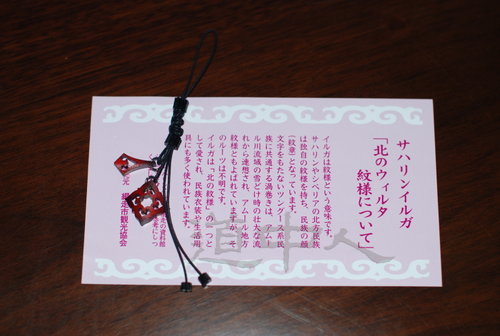 サハリンイルガ
「北のウィルタ
紋様について」
イルガは紋様という意味です。
サハリンやシベリアの北方民族
は独自の紋様を持ち、民族の顔
（紋章）となっています。
文字をもたないツングース系民
族に共通する渦巻きは、アムー
ル川流域の雪どけ時の壮大な流
れから連想され、アムール地方
紋様ともよばれていますが、そ
のルーツは不明です。
イルガは、北の紋様の
として愛され、民族衣装や生活用
具にも多く使われています。
の資料館
網走市観光協会
道中人